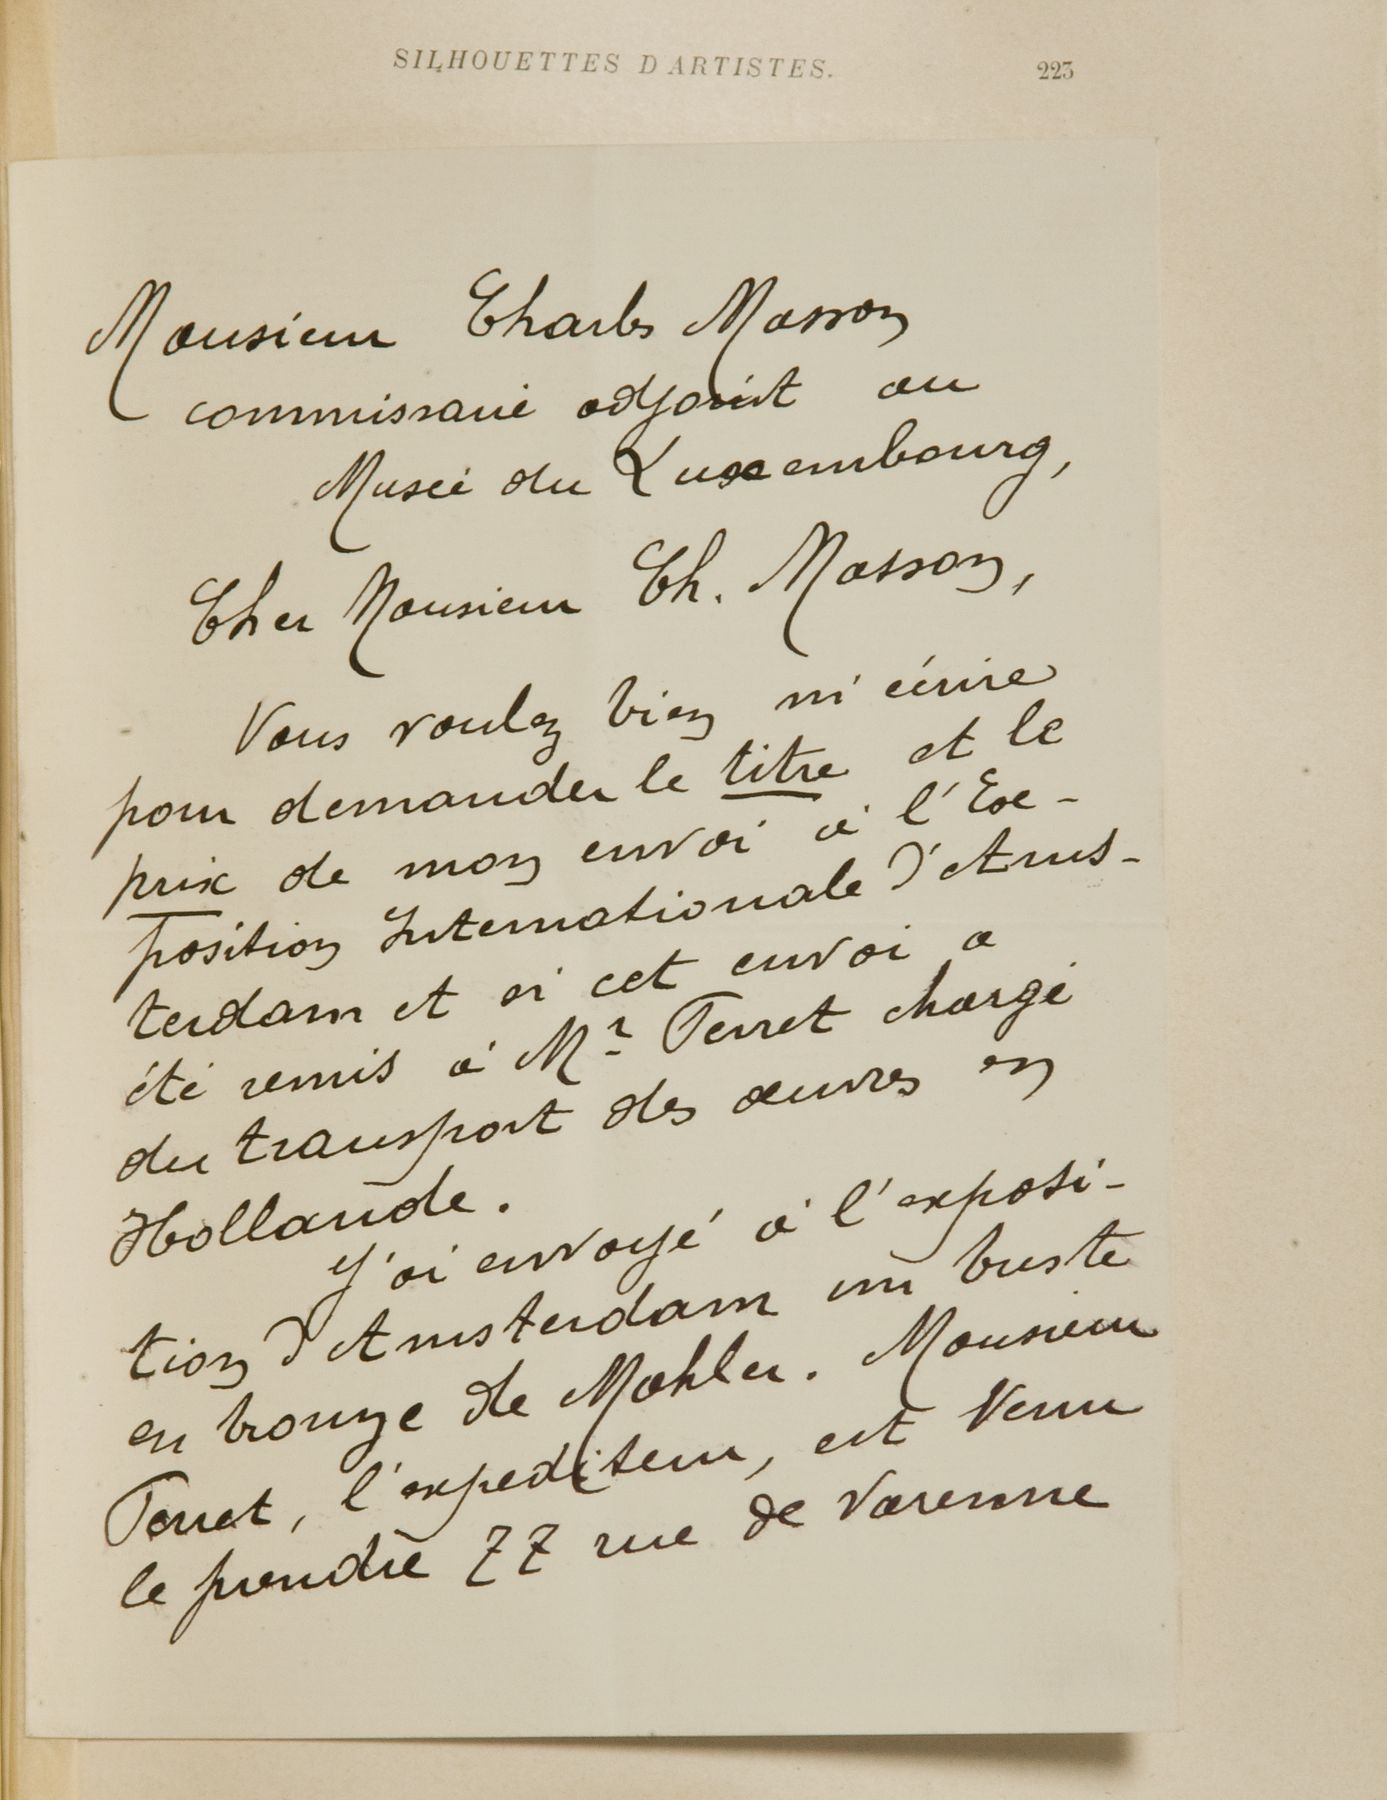 SILHOUETTES D'ARTISTES.
223
Monsieur Charles Masson
commissaire adjoint au
Musée du Luxembourg,
Cher Monsieur Ch. Masson,
Vous voulez bien m'écrire
pour demander le titre et le
prix de mon envoi à l'Ex-
position Internationale d'Ams-
terdam et si cet envoi a
été remis à Mr. Terret chargé
du transport des œuvres en
Hollande.
J'ai envoyé à l'exposi-
tion d'Amsterdam un buste
en bronze de Mahler. Monsieur
Terret, l'expediteur, est venu
le prendre 77 rue de Varenne